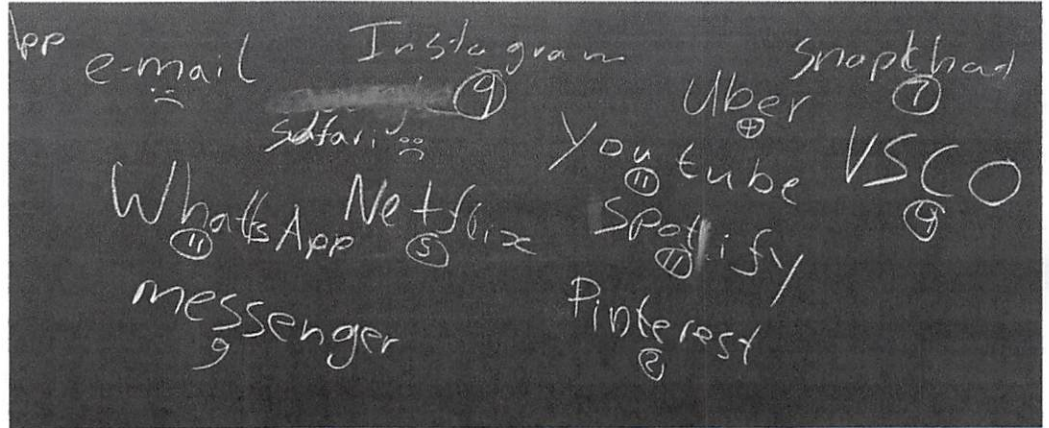 App
e-mail
Instagram
9
safari
Snapchad
7
Uber
4
Youtube
11
VSCO
9
WhatsApp
11
Netflix
5
Spotify
11
messenger
9
Pinterest
2